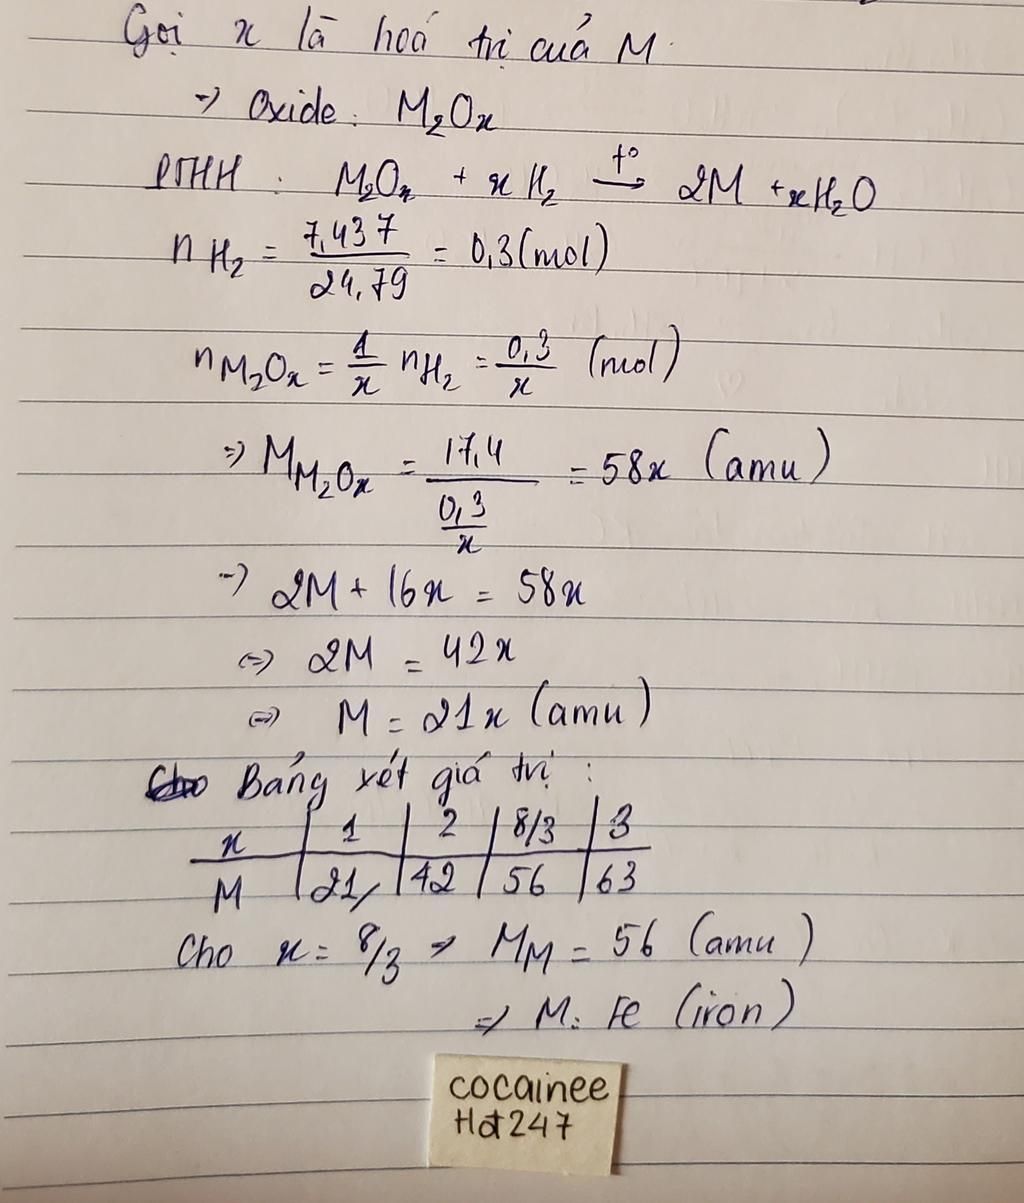 Gọi x là hoá trị của M.
=> Oxide: M₂Oₓ
PTHH: M₂Oₓ + xH₂ →(t°) 2M + xH₂O
nH₂ = 7,437/24,79 = 0,3 (mol)
nM₂Oₓ = 1/x nH₂ = 0,3/x (mol)
=> MM₂Oₓ = 17,4/(0,3/x) = 58x (amu)
=> 2M + 16x = 58x
<=> 2M = 42x
<=> M = 21x (amu)
Bảng xét giá trị:
x | 1 | 2 | 8/3 | 3
M | 21 | 42 | 56 | 63
Cho x = 8/3 => MM = 56 (amu)
=> M: Fe (iron)
cocainee
Hot247